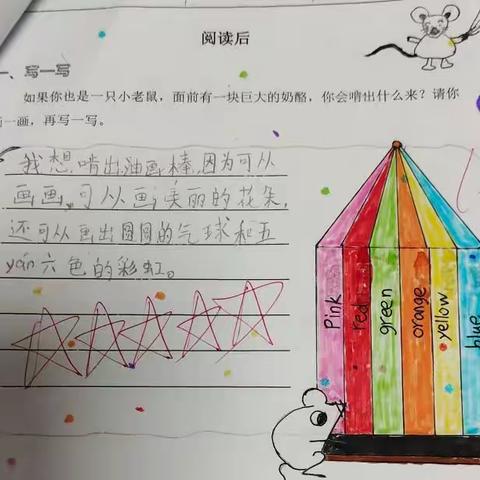 阅读后
一、写一写
如果你也是一只小老鼠，面前有一块巨大的奶酪，你会啃出什么来？请你
画一画，再写一写。
我想啃出油画棒，因为可以
画画，可以画美丽的花朵，
还可以画出圆圆的气球和五
yán六色的彩虹。
Pink
red
green
orange
yellow
blue